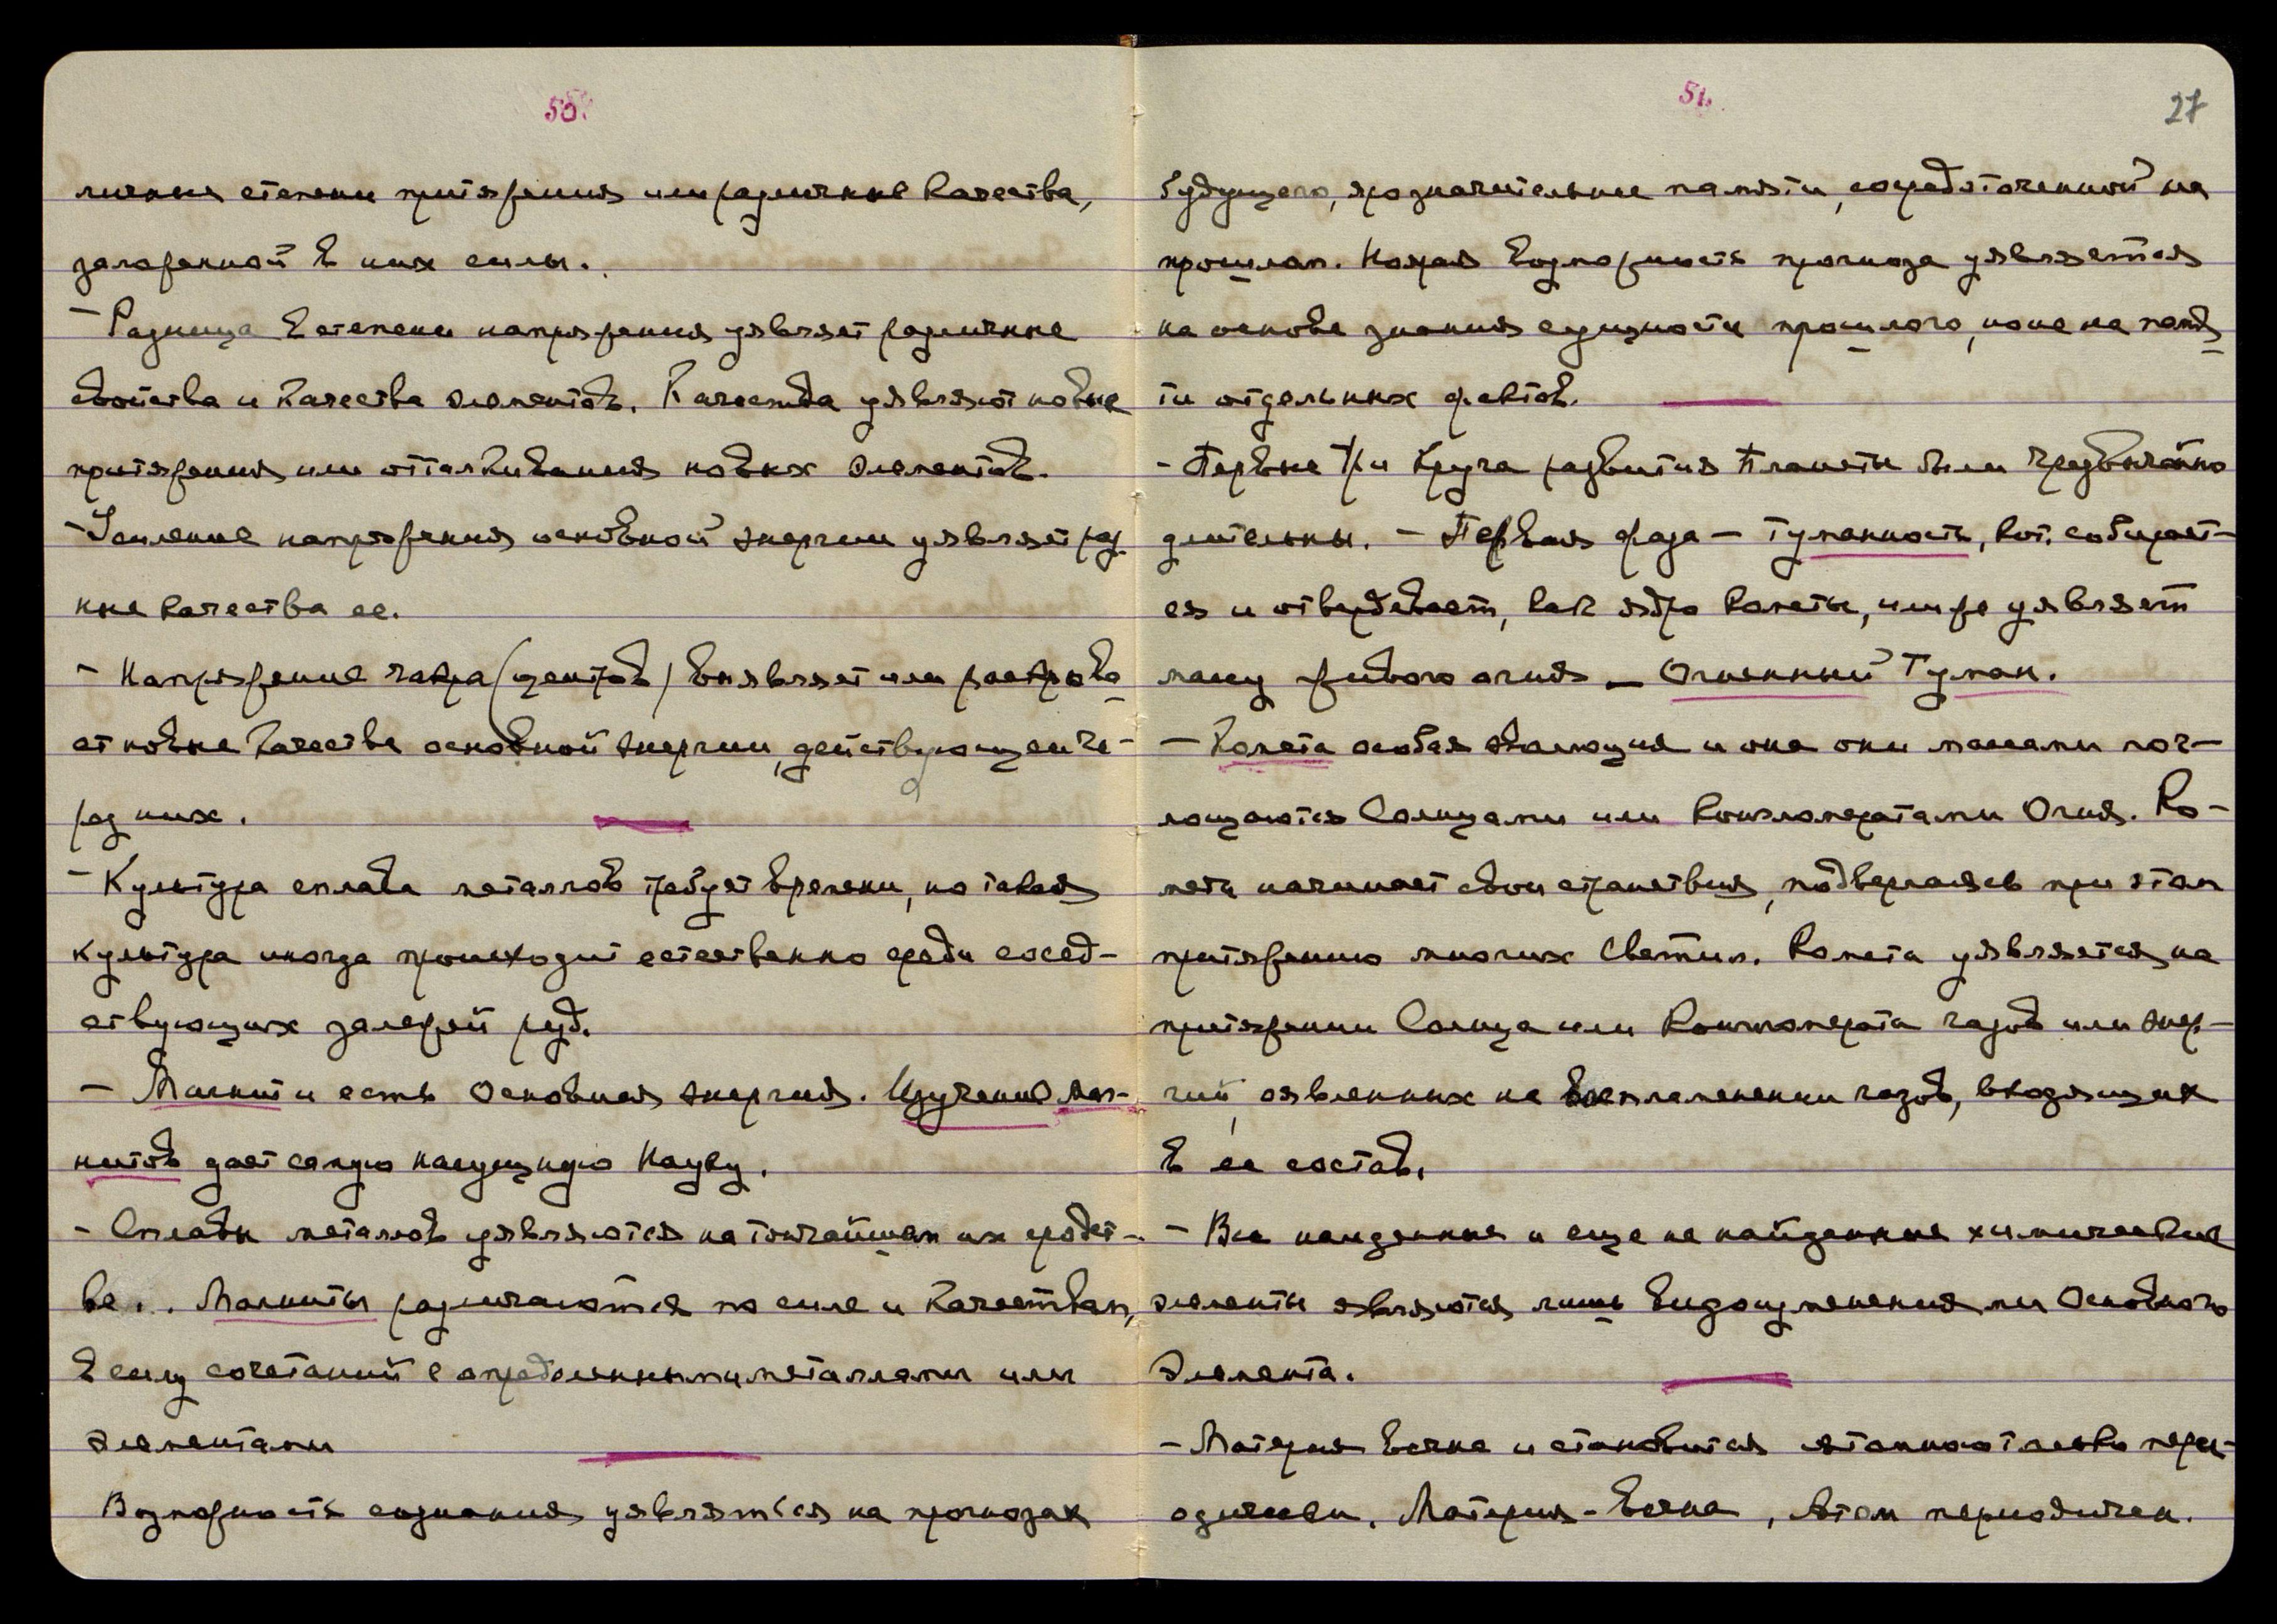 50.
личныя степени притяжения или различные качества,
заложенной в них силы.
- Разница в степени напряжения уявляет различные
свойства и качества элементов. Качества уявляют новые
притяжения или отталкивания новых элементов.
- Усиление напряжения основной энергии уявляет раз
ные качества ее.
- Напряжение чакра (центров) выявляет или раскрыва
ет новые качества основной энергии, действующей че-
рез них.
- Культура сплава металлов требует времени, но такая
культура иногда происходит естественно среди сосед-
ствующих залежей руд.
- Магнит и есть Основная энергия. Изучение Маг-
нитов дает самую насущную Науку.
- Сплавы металлов уявляются на тончайшем их средст-
ве.. Магниты различаются по силе и качествам,
в силу сочетаний с определенными металлами или
элементами
Возможность сознания уявляться на прогнозах
51.
27
будущего, яро значительнее памяти, сосредоточенной на
прошлом. Новая возможность прогноза уявляется
на основе знания сущности прошлого, но не на памя
ти отдельных фактов.
- Первые Три Круга развития Планеты были чрезвычайно
длительны. - Первая фаза - туманность, кот. собирает-
ся и отвердевает, как ядро кометы, или же уявляет
массу живого огня - Огненный Туман.
- Комета особая эволюция и она они массами пог-
лощаются Солнцами или Конгломератами Огня. Ко-
мета начинает свои странствия, подвергаясь при этом
притяжению многих Светил. Комета уявляется на
притяжении Солнца или Конгломерата газов или энер-
гий, оявленных на воспламенении газов, входящих
в ее состав.
- Все найденные и еще не найденные химические
элементы являются лишь видоизменениями Основного
Элемента.
- Материя вечна и становится атомною только пери-
одически. Материя - вечна, Атом периодичен.